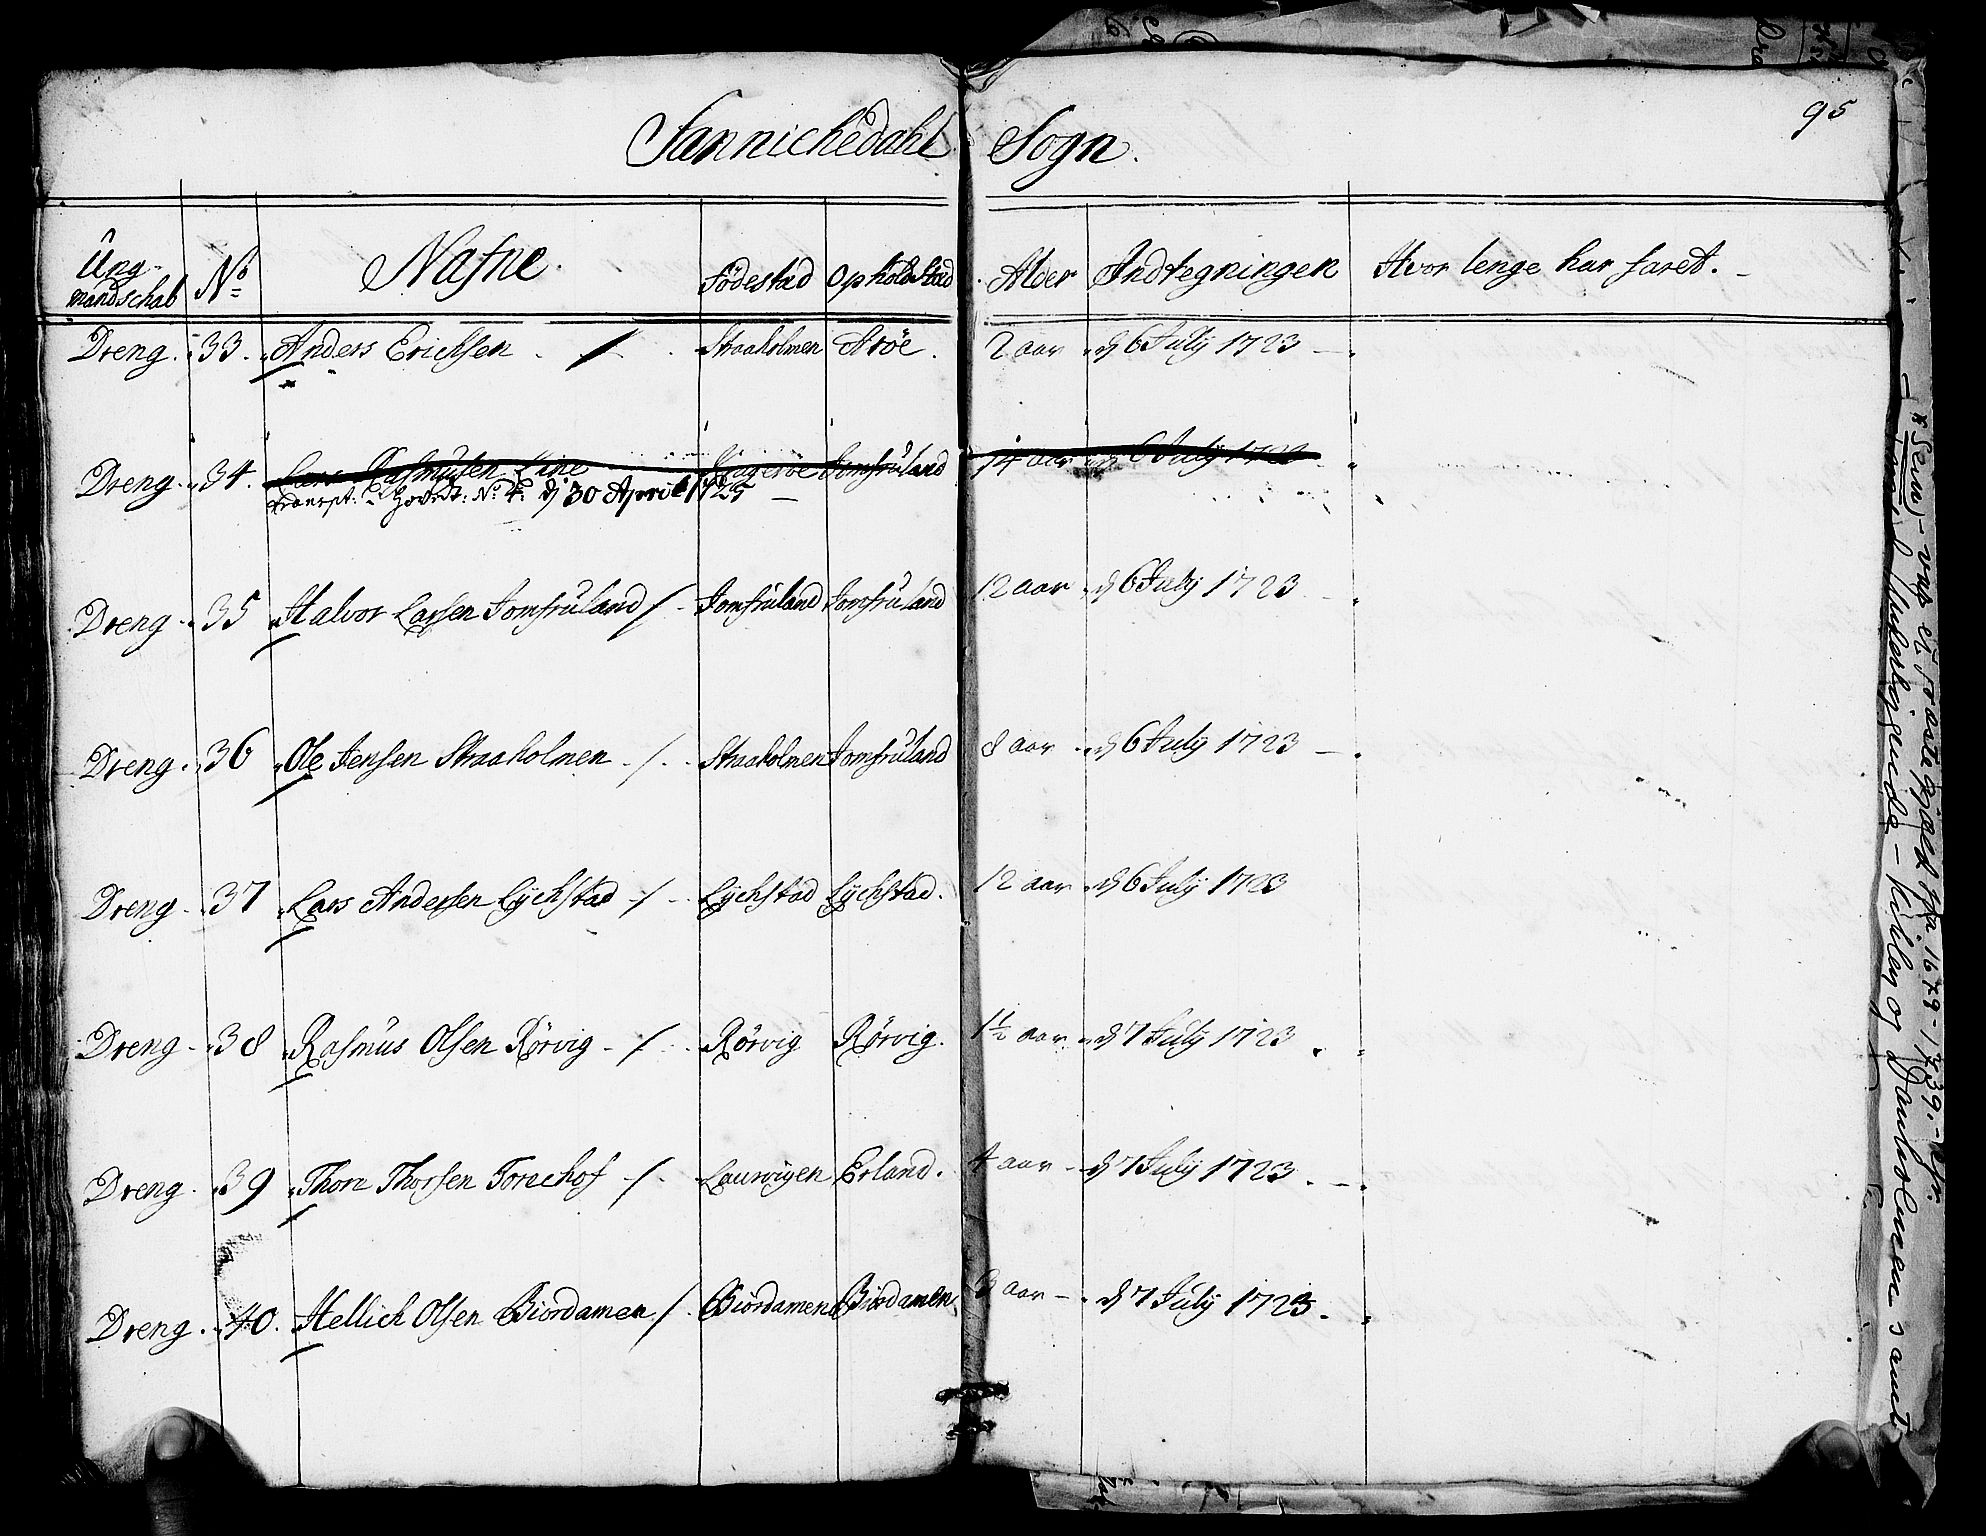 95
Sannichedahl Sogn.
Ung-
mandschab No Nafne. Födestad Opholdstad Alder Indtegningen Hvor lenge har faret.
Dreng. 33. Anders Erichsen Straaholmen Aröe. 2 aar d 6 July 1723
Dreng 34. Lars Rasmusen Line Jomfruland 14 aar d 6 July 1723
No 4 d 30 April 1725
Dreng 35 Halvor Larsen Jomfruland / Jomfruland Jomfruland 12 aar d 6 July 1723
Dreng. 36 Ole Jensen Straaholmen / Straaholmen Jomfruland 8 aar d 6 July 1723
Dreng 37 Lars Andersen Lychstad / Lychstad Lychstad. 12 aar d 6 July 1723
Dreng 38 Rasmus Olsen Rörvig / Rörvig Rörvig. 1½ aar d 7 July 1723
Dreng 39 Thore Thorsen Torechof / Laurvigen Erland. 4 aar d 7 July 1723.
Dreng. 40. Hellich Olsen Biordamen / Biordamen Biordamen 3 aar d 7 July 1723.